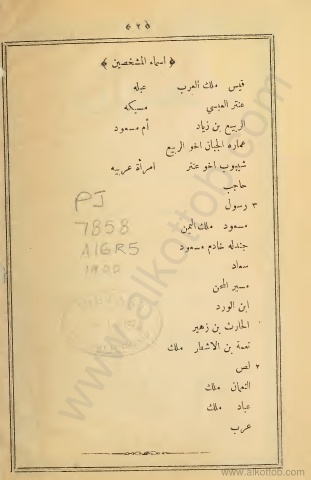 ﴿ ٢ ﴾
﴿ اسماء المشخصين ﴾
قيس ملك العرب عبله
عنتر العبسي مسيكه
الربيع بن زياد أم مسعود
عماره الجبان اخو الربيع
شيبوب اخو عنتر امرأة عربيه
حاجب
٣ رسول
مسعود ملك اليمن
جندله خادم مسعود
سعاد
مسبر المحن
ابن الورد
الحارث بن زهير
نعمة بن الاشطر ملك
٢ لص
النعمان ملك
عباد ملك
عرب
PJ
7858
A16R5
1900
www.alkottob.com
www.alkottob.com